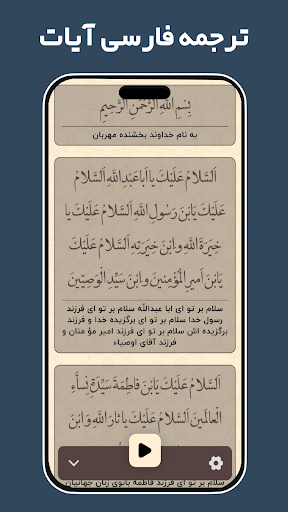 ترجمه فارسی آیات
بِسْمِ اللَّهِ الرَّحْمَنِ الرَّحِيمِ
به نام خداوند بخشنده مهربان
اَلسَّلامُ عَلَيْكَ يا اَباعَبْدِ اللَّهِ اَلسَّلامُ
عَلَيْكَ يَابْنَ رَسُولِ اللَّهِ اَلسَّلامُ عَلَيْكَ يا
خِيَرَةَ اللَّهِ وابْنَ خِيَرَتِهِ اَلسَّلامُ عَلَيْكَ
يَابْنَ اَميرِ الْمُؤْمِنينَ وابْنَ سَيِّدِ الْوَصِيّينَ
سلام بر تو ای ابا عبداللّه سلام بر تو ای فرزند
رسول خدا سلام بر تو ای برگزیده خدا و فرزند
برگزیده اش سلام بر تو ای فرزند امیر مؤ منان و
فرزند آقای اوصیاء
اَلسَّلامُ عَلَيْكَ يَابْنَ فاطِمَةَ سَيِّدَةِ نِساَّءِ
الْعالَمينَ اَلسَّلامُ عَلَيْكَ يا ثارَ اللَّهِ وابْنَ
سلام بر تو ای فرزند فاطمه بانوی زنان جهانیان